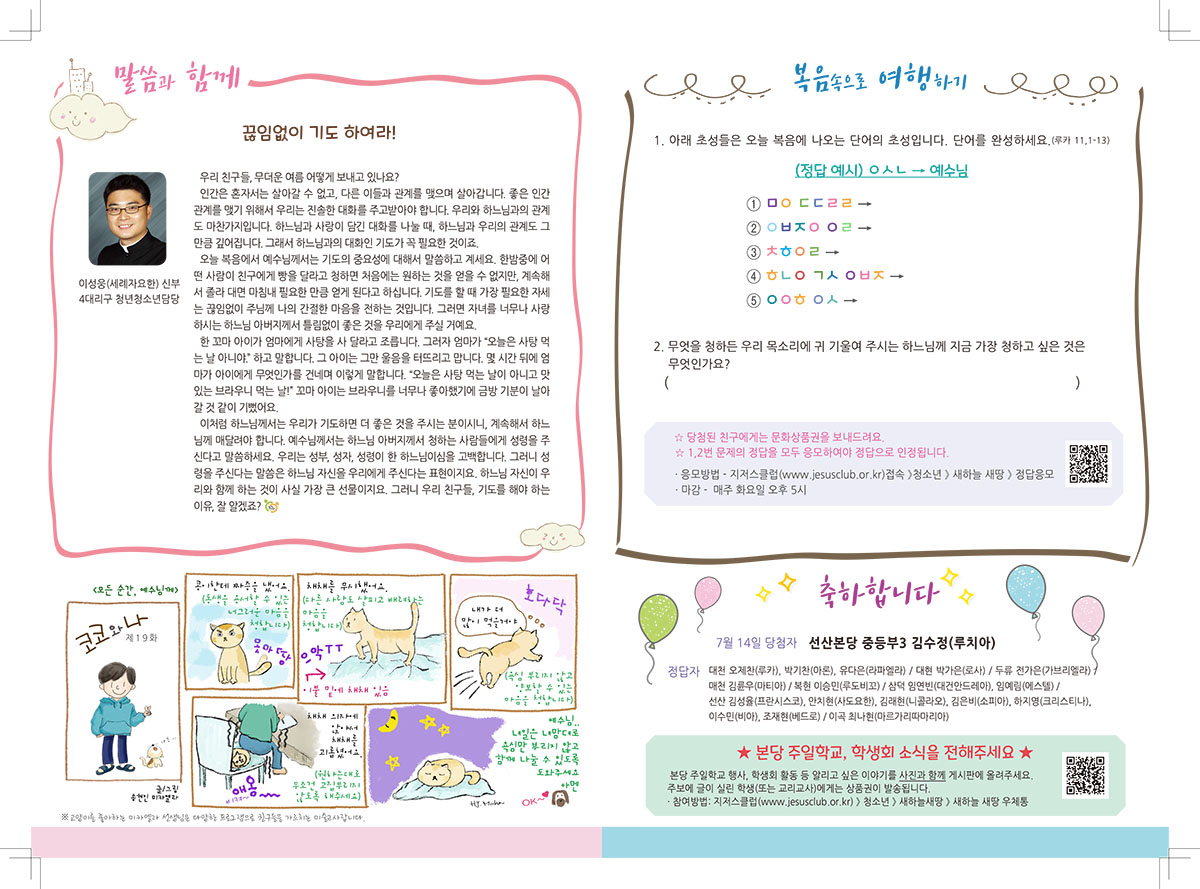 말씀과 함께
끊임없이 기도 하여라!
이성웅(세례자요한) 신부
4대리구 청년청소년담당
우리 친구들, 무더운 여름 어떻게 보내고 있나요?
인간은 혼자서는 살아갈 수 없고, 다른 이들과 관계를 맺으며 살아갑니다. 좋은 인간
관계를 맺기 위해서 우리는 진솔한 대화를 주고받아야 합니다. 우리와 하느님과의 관계
도 마찬가지입니다. 하느님과 사랑이 담긴 대화를 나눌 때, 하느님과 우리의 관계도 그
만큼 깊어집니다. 그래서 하느님과의 대화인 기도가 꼭 필요한 것이죠.
오늘 복음에서 예수님께서는 기도의 중요성에 대해서 말씀하고 계세요. 한밤중에 어
떤 사람이 친구에게 빵을 달라고 청하면 처음에는 원하는 것을 얻을 수 없지만, 계속해
서 졸라 대면 마침내 필요한 만큼 얻게 된다고 하십니다. 기도를 할 때 가장 필요한 자세
는 끊임없이 주님께 나의 간절한 마음을 전하는 것입니다. 그러면 자녀를 너무나 사랑
하시는 하느님 아버지께서 틀림없이 좋은 것을 우리에게 주실 거예요.
한 꼬마 아이가 엄마에게 사탕을 사 달라고 조릅니다. 그러자 엄마가 “오늘은 사탕 먹
는 날 아니야.” 하고 말합니다. 그 아이는 그만 울음을 터뜨리고 맙니다. 몇 시간 뒤에 엄
마가 아이에게 무엇인가를 건네며 이렇게 말합니다. “오늘은 사탕 먹는 날이 아니고 맛
있는 브라우니 먹는 날!” 꼬마 아이는 브라우니를 너무나 좋아했기에 금방 기분이 날아
갈 것 같이 기뻤어요.
이처럼 하느님께서는 우리가 기도하면 더 좋은 것을 주시는 분이시니, 계속해서 하느
님께 매달려야 합니다. 예수님께서는 하느님 아버지께서 청하는 사람들에게 성령을 주
신다고 말씀하세요. 우리는 성부, 성자, 성령이 한 하느님이심을 고백합니다. 그러니 성
령을 주신다는 말씀은 하느님 자신을 우리에게 주신다는 표현이지요. 하느님 자신이 우
리와 함께 하는 것이 사실 가장 큰 선물이지요. 그러니 우리 친구들, 기도를 해야 하는
이유, 잘 알겠죠?
<모든 순간, 예수님께>
코코와 나
제19화
글/그림
송현신 미카엘라
콩이한테 짜증을 냈어요.
(동생을 용서할 수 있는
너그러운 마음을
청합니다)
못마땅
채채를 무시했어요.
(다른 사람도 살피고 배려하는
마음을
청합니다)
으악 TT
이불 밑에 채채 있음
호다닥
내가 더
많이 먹을거야
(욕심 부리지 않고
양보할 수 있는
마음을 청합니다)
채채 의자에
앉아서
채채를
괴롭혔어요
(원하는대로
무조건 고집부리지
않도록 해주세요)
애옹~
예수님..
내일은 내맘대로
욕심만 부리지 않고
함께 나눌 수 있도록
도와주세요
아멘
OK~
※고양이를 좋아하는 미카엘라 선생님은 다양한 프로그램으로 친구들을 가르치는 미술교사랍니다.
복음속으로 여행하기
1. 아래 초성들은 오늘 복음에 나오는 단어의 초성입니다. 단어를 완성하세요.(루카 11,1-13)
(정답 예시) ㅇㅅㄴ → 예수님
① ㅁㅇ ㄷㄷㄹㄹ →
② ㅇㅂㅈㅇ ㅇㄹ →
③ ㅊㅎㅇㄹ →
④ ㅎㄴㅇ ㄱㅅ ㅇㅂㅈ →
⑤ ㅇㅇㅎ ㅇㅅ →
2. 무엇을 청하든 우리 목소리에 귀 기울여 주시는 하느님께 지금 가장 청하고 싶은 것은
무엇인가요?
( )
☆ 당첨된 친구에게는 문화상품권을 보내드려요.
☆ 1,2번 문제의 정답을 모두 응모하여야 정답으로 인정됩니다.
· 응모방법 - 지저스클럽(www.jesusclub.or.kr)접속 》청소년 》새하늘 새땅 》정답응모
· 마감 - 매주 화요일 오후 5시
축하합니다
7월 14일 당첨자 선산본당 중등부3 김수정(루치아)
정답자 대천 오제찬(루카), 박기찬(아론), 유다은(라파엘라) / 대현 박가은(로사) / 두류 전가은(가브리엘라) /
매천 김륜우(마티아) / 복현 이승민(루도비꼬) / 삼덕 임연빈(대건안드레아), 임예림(에스텔) /
선산 김성율(프란시스코), 안치현(사도요한), 김래현(니콜라오), 김은비(소피아), 하지영(크리스티나),
이수민(비아), 조재현(베드로) / 이곡 최나현(마르가리따마리아)
★ 본당 주일학교, 학생회 소식을 전해주세요 ★
본당 주일학교 행사, 학생회 활동 등 알리고 싶은 이야기를 사진과 함께 게시판에 올려주세요.
주보에 글이 실린 학생(또는 교리교사)에게는 상품권이 발송됩니다.
· 참여방법: 지저스클럽(www.jesusclub.or.kr) 》청소년 》새하늘새땅 》새하늘 새땅 우체통